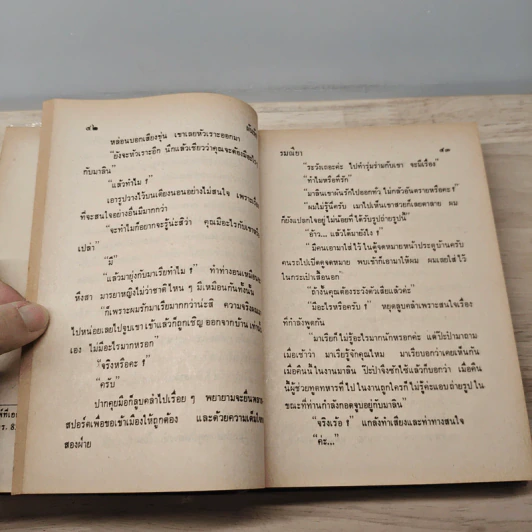 ๔๒
หล่อนบอกเสียงขุ่น เขาเลยหัวเราะออกมา
"ยังจะหัวเราะอีก นึกแล้วเชียวว่าคุณจะต้อง
กับมาลิน"
"แล้วทำไม ?"
เอารูปวางไว้บนเตียงนอนอย่างไม่สนใจ เพราะ
ที่จะสนใจอย่างอื่นมีมากกว่า
"จะทำไมก็อยากจะรู้น่ะสิว่า คุณมีอะไรกับเขา
เปล่า"
"มี"
"แล้วมายุ่งกับมาเรียทำไม ?" ทำท่างอนเหมือน
หึงสา มารยาหญิงไม่ว่าชาติไหน ๆ มีเหมือนกันทั้งนั้น
"ก็เพราะผมรักมาเรียมากกว่าน่ะสิ ความจริงผม
ไปหน่อยเลยไปจูบเขาเข้าแล้วก็ถูกเชิญออกจากบ้าน เท่านั้น
เอง ไม่มีอะไรมากหรอก"
"จริงหรือคะ ?"
"ครับ"
ปากคุยมือก็ลูบคลำไปเรื่อย ๆ พยายามจะยื่น
สปอร์ตเพื่อขอเข้าเมืองให้ถูกต้อง และด้วยความเต็มใจ
สองฝ่าย
รมณียา
๔๓
"ระวังเถอะค่ะ ไปทำรุ่มร่ามกับเขา จะมีเรื่อง"
"ทำไมหรือที่รัก"
"มาลินเขาผันรักไปออกทัว ไม่กลัวอันตรายหรือคะ ?"
"ผมไม่รู้นี่ครับ เมาไปเห็นเขาสวยก็เลยตาลาย ผม
ก็ยังแปลกใจอยู่ไม่น้อยที่ได้รับรูปถ่ายรูปนี้"
"อ้าว... แล้วได้มายังไง ?"
"มีคนเอามาใส่ไว้ในตู้จดหมายหน้าประตูบ้านครับ
คนรถไปเปิดดูจดหมาย พบเข้าก็เอามาให้ผม ผมเลยใส่ไว้
ในกระเป๋าเสื้อนอก"
"ถ้างั้นคุณต้องระวังตัวเสียแล้วค่ะ"
"มีอะไรหรือครับ ?" หยุดลูบคลำเพราะสนใจเรื่อง
ที่กำลังพูดกัน
"มาเรียก็ไม่รู้อะไรมากนักหรอกค่ะ แต่ป๊ะป๋ามาถาม
เมื่อเช้าว่า มาเรียรู้จักคุณไหม มาเรียบอกว่าเคยเห็นกัน
เมื่อคืนนี้ในงานมาลิน ป๊ะป๋าจึงซักใช้แล้วก็บอกว่า เมื่อคืน
นี้ผู้ช่วยทูตทหารที่ไปในงานถูกใครก็ไม่รู้ค่ะแอบถ่ายรูปใน
ขณะที่ท่านกำลังกอดจูบอยู่กับมาลิน"
"จริงเร้อ ?" แกล้งทำเสียงและท่าทางสนใจ
"ค่ะ..."